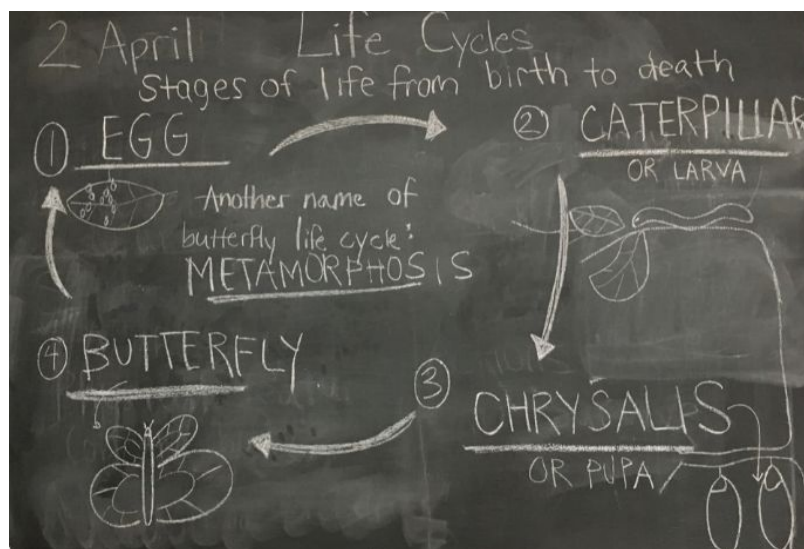 2 April Life Cycles
Stages of life from birth to death
① EGG
② CATERPILLAR
OR LARVA
Another name of
butterfly life cycle:
METAMORPHOSIS
④ BUTTERFLY
③ CHRYSALIS
OR PUPA